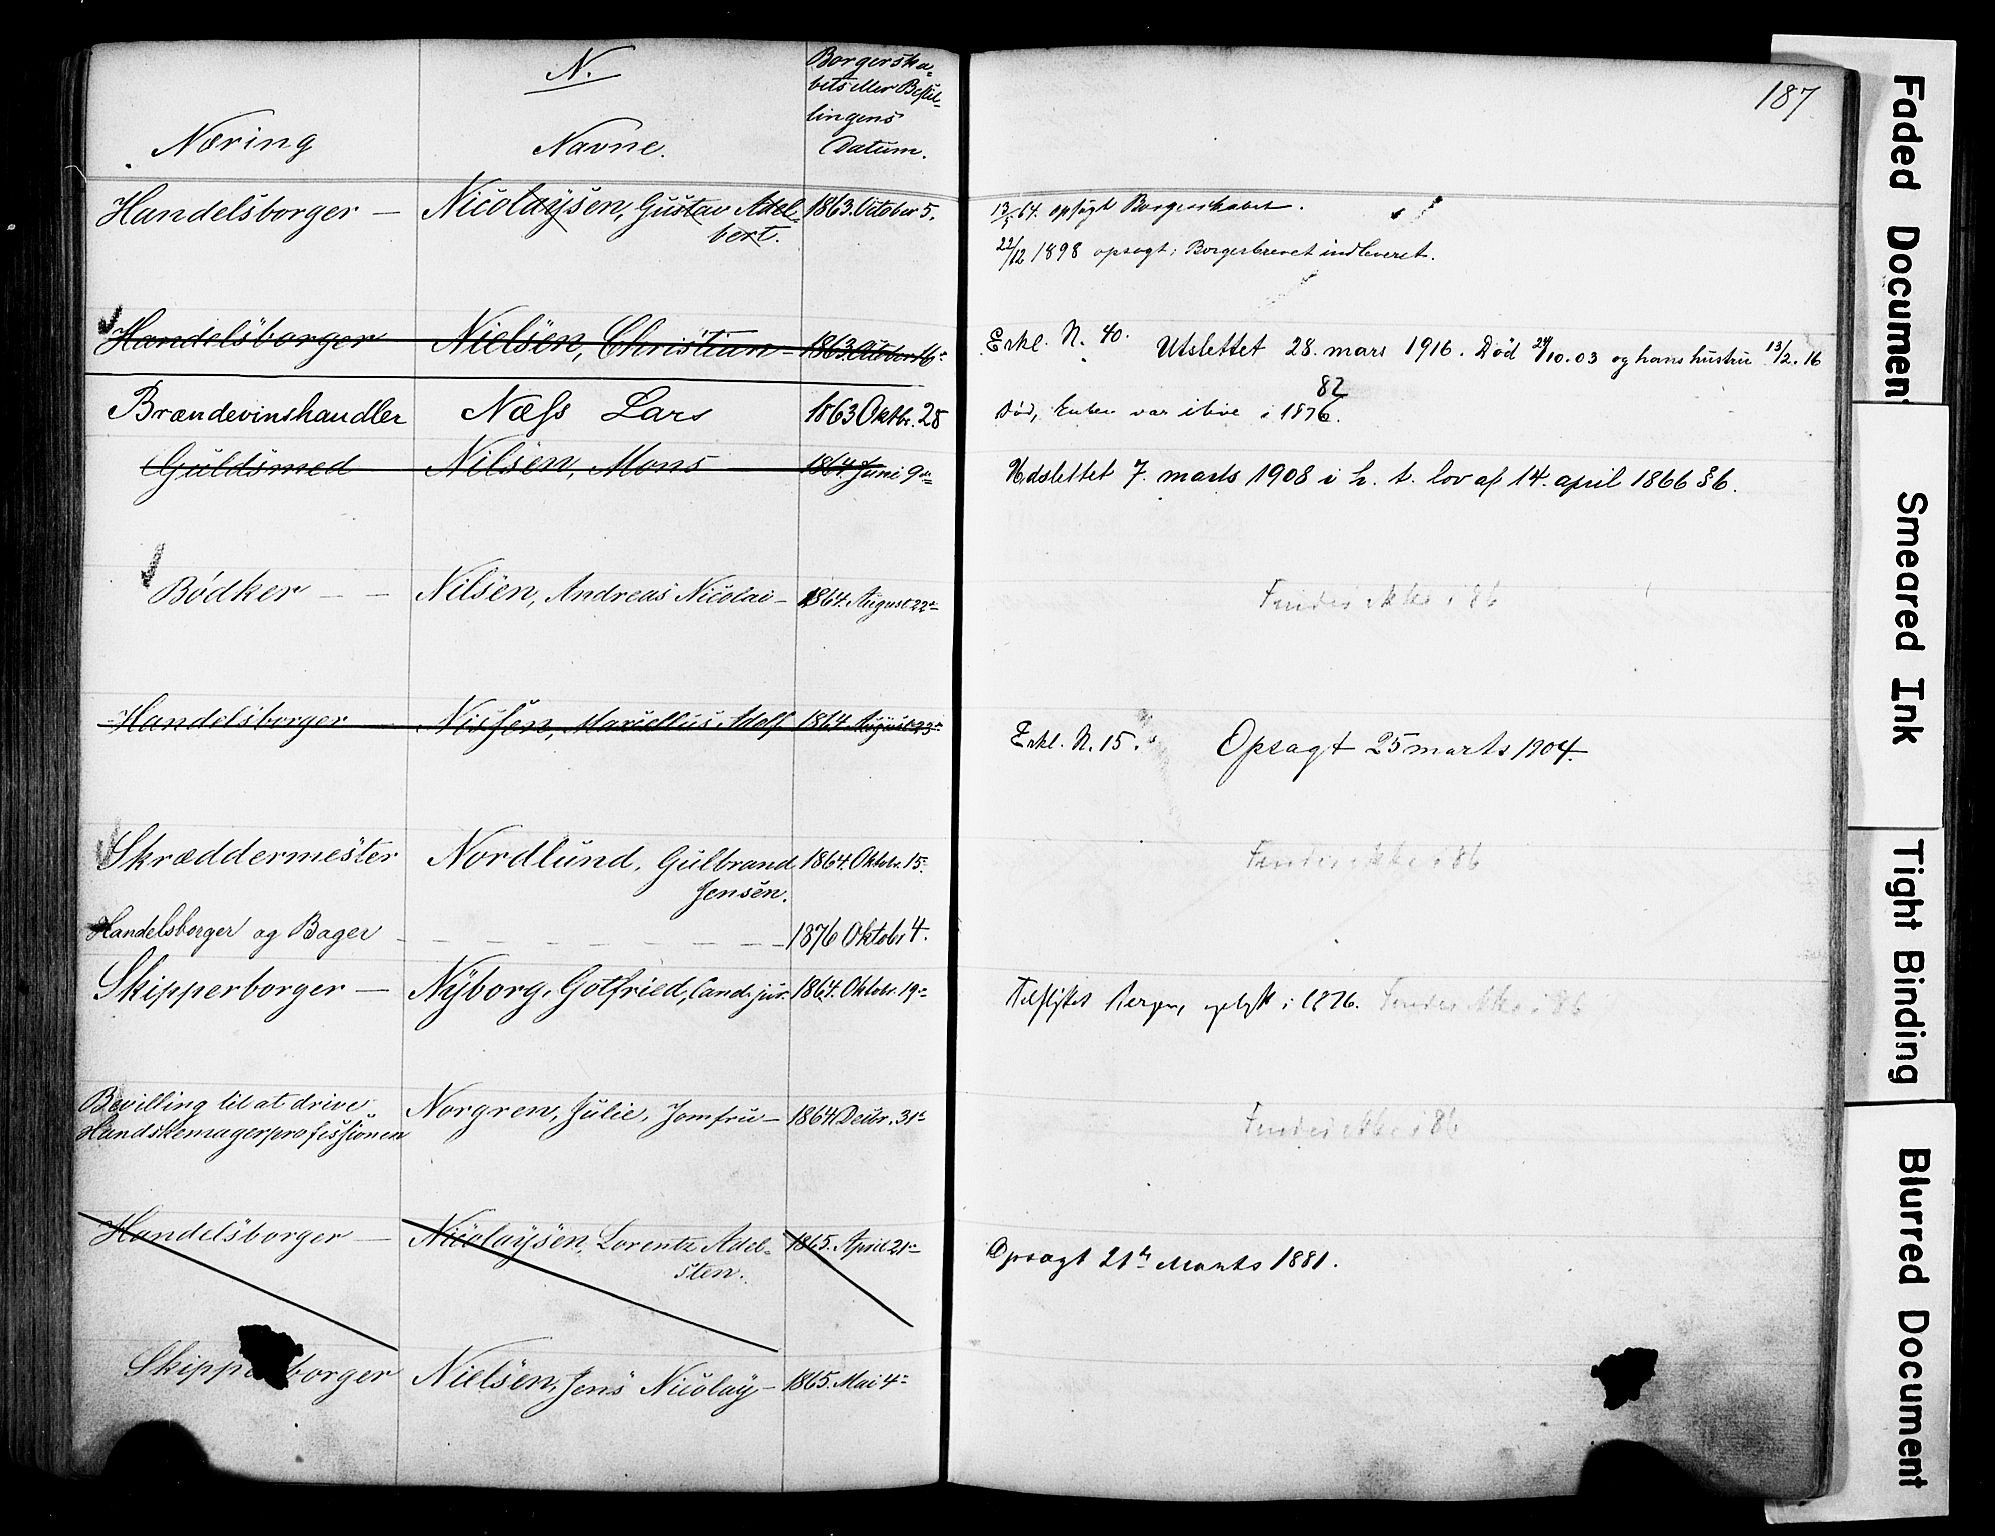 N.
Borgerska-
bets eller Bestil-
lingens
Datum.
Næring
Navne.
187
Handelsborger — Nicolaysen, Gustav Adel- 1863. October 5.
bert.
13/5 64. opsagt Borgerskabet.
22/12 1898 opsagt; Borgerbrevet indleveret.
Handelsborger Nielsen, Christian — 1863. October 16de
Erkl. N. 40. Utslettet 28. mars 1916. Død 24/10.03 og hans hustru 13/2.16
Brændevinshandler Næss Lars 1863 Oktbr. 28
82
Død, Enken var ilive i 1876.
Guldsmed Nilsen, Mons 1864. Juni 9de
Udslettet 7. marts 1908 i h. t. lov af 14. april 1866 § 6.
Bødker — — Nilsen, Andreas Nicolai — 1864. August 22de
Findes ikke i 86
Handelsborger Nissen, Marcellus Adolf 1864. August 23de
Erkl. N. 15. Opsagt 25 marts 1904.
Skræddermester Nordlund, Gulbrand 1864. Oktobr. 15.
Jensen.
Findes ikke i 86
Handelsborger og Bager — — — — — — — — 1876 Oktobr 4.
Skipperborger — Nyborg, Gotfried, Cand. jur. 1864. Oktobr. 19de
Tilflyttet Bergen, oplyst i 1876. Findes ikke i 86
Bevilling til at drive
Handskemagerprofessionen
Norgren, Julie, Jomfru — 1864 Decbr. 31te
Findes ikke i 86
Handelsborger — Nicolaysen, Lorentz Adel- 1865. April 21de
sten.
Opsagt 21de Marts 1881.
Skipperborger Nielsen, Jens Nicolay — 1865. Mai 4de
Faded Document
Smeared Ink
Tight Binding
Blurred Document